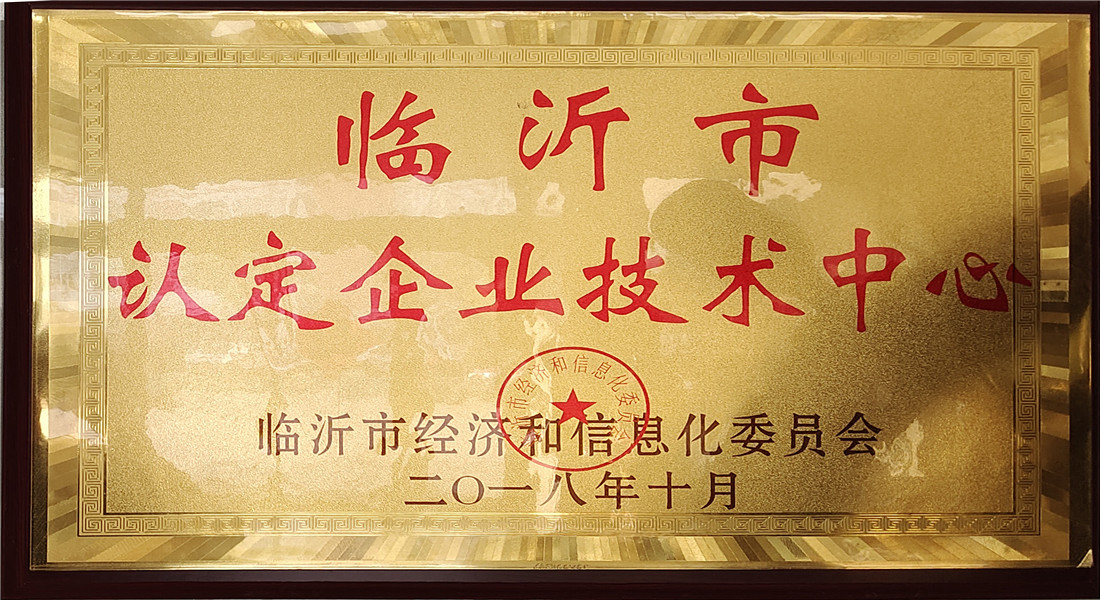 临沂市
认定企业技术中心
市经济和信息化委员会
临沂市经济和信息化委员会
二〇一八年十月